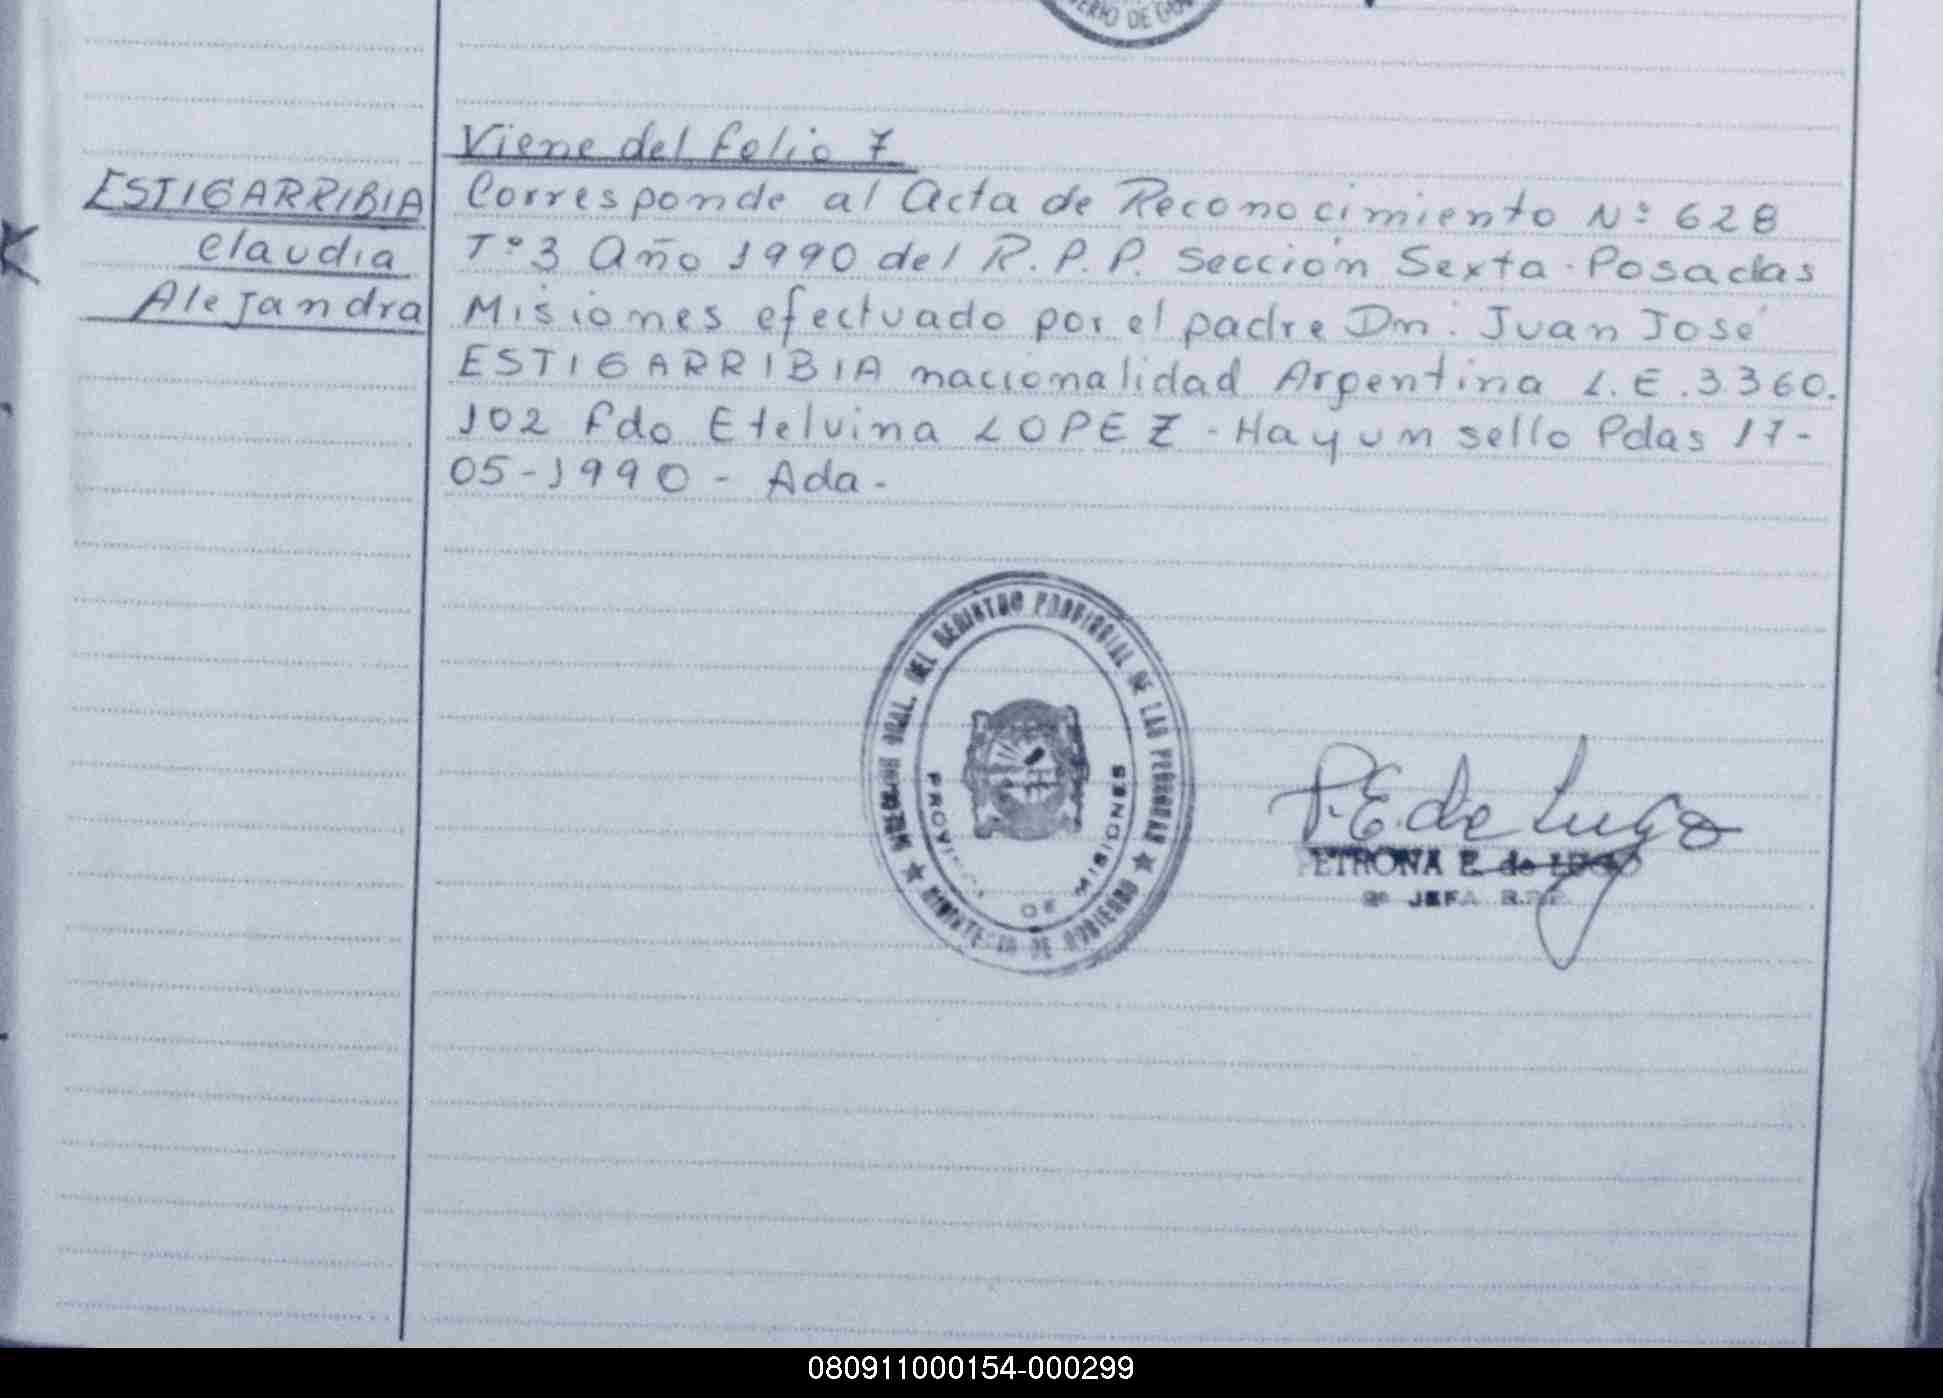 Viene del folio 7
ESTIGARRIBIA
Claudia
Alejandra
Corresponde al Acta de Reconocimiento Nº 628
Tº 3 Año 1990 del R.P.P. Sección Sexta. Posadas
Misiones efectuado por el padre Dn. Juan José
ESTIGARRIBIA nacionalidad Argentina L.E. 3360.
102 fdo Etelvina LOPEZ - Hay un sello Pdas 17-
05-1990 - Ada -
DEL REGISTRO PROVINCIAL DE LAS PERSONAS
MINISTERIO DE GOBIERNO
PROVINCIA DE MISIONES
P.E. de Lugo
PETRONA E. de LUGO
JEFA R.P.P.
080911000154-000299